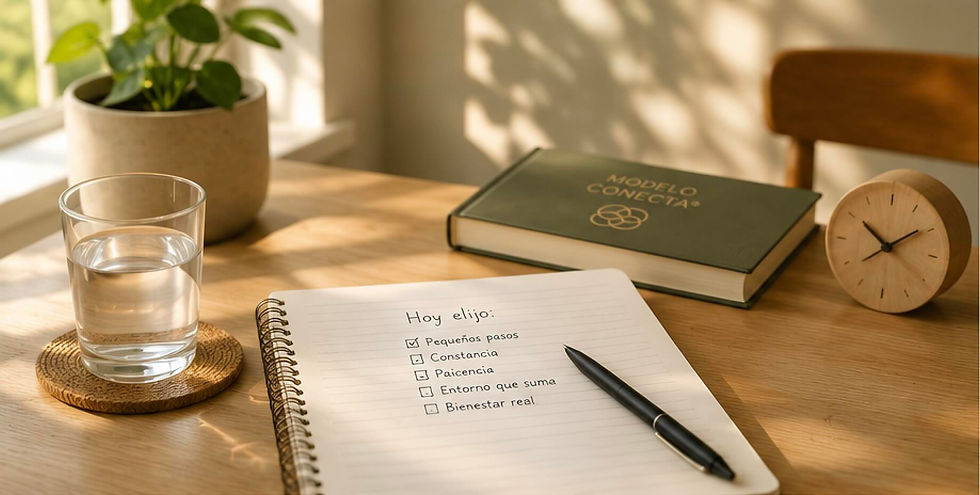 MODELO
CONECTA®
Hoy elijo:
Pequeños pasos
Constancia
Paicencia
Entorno que suma
Bienestar real